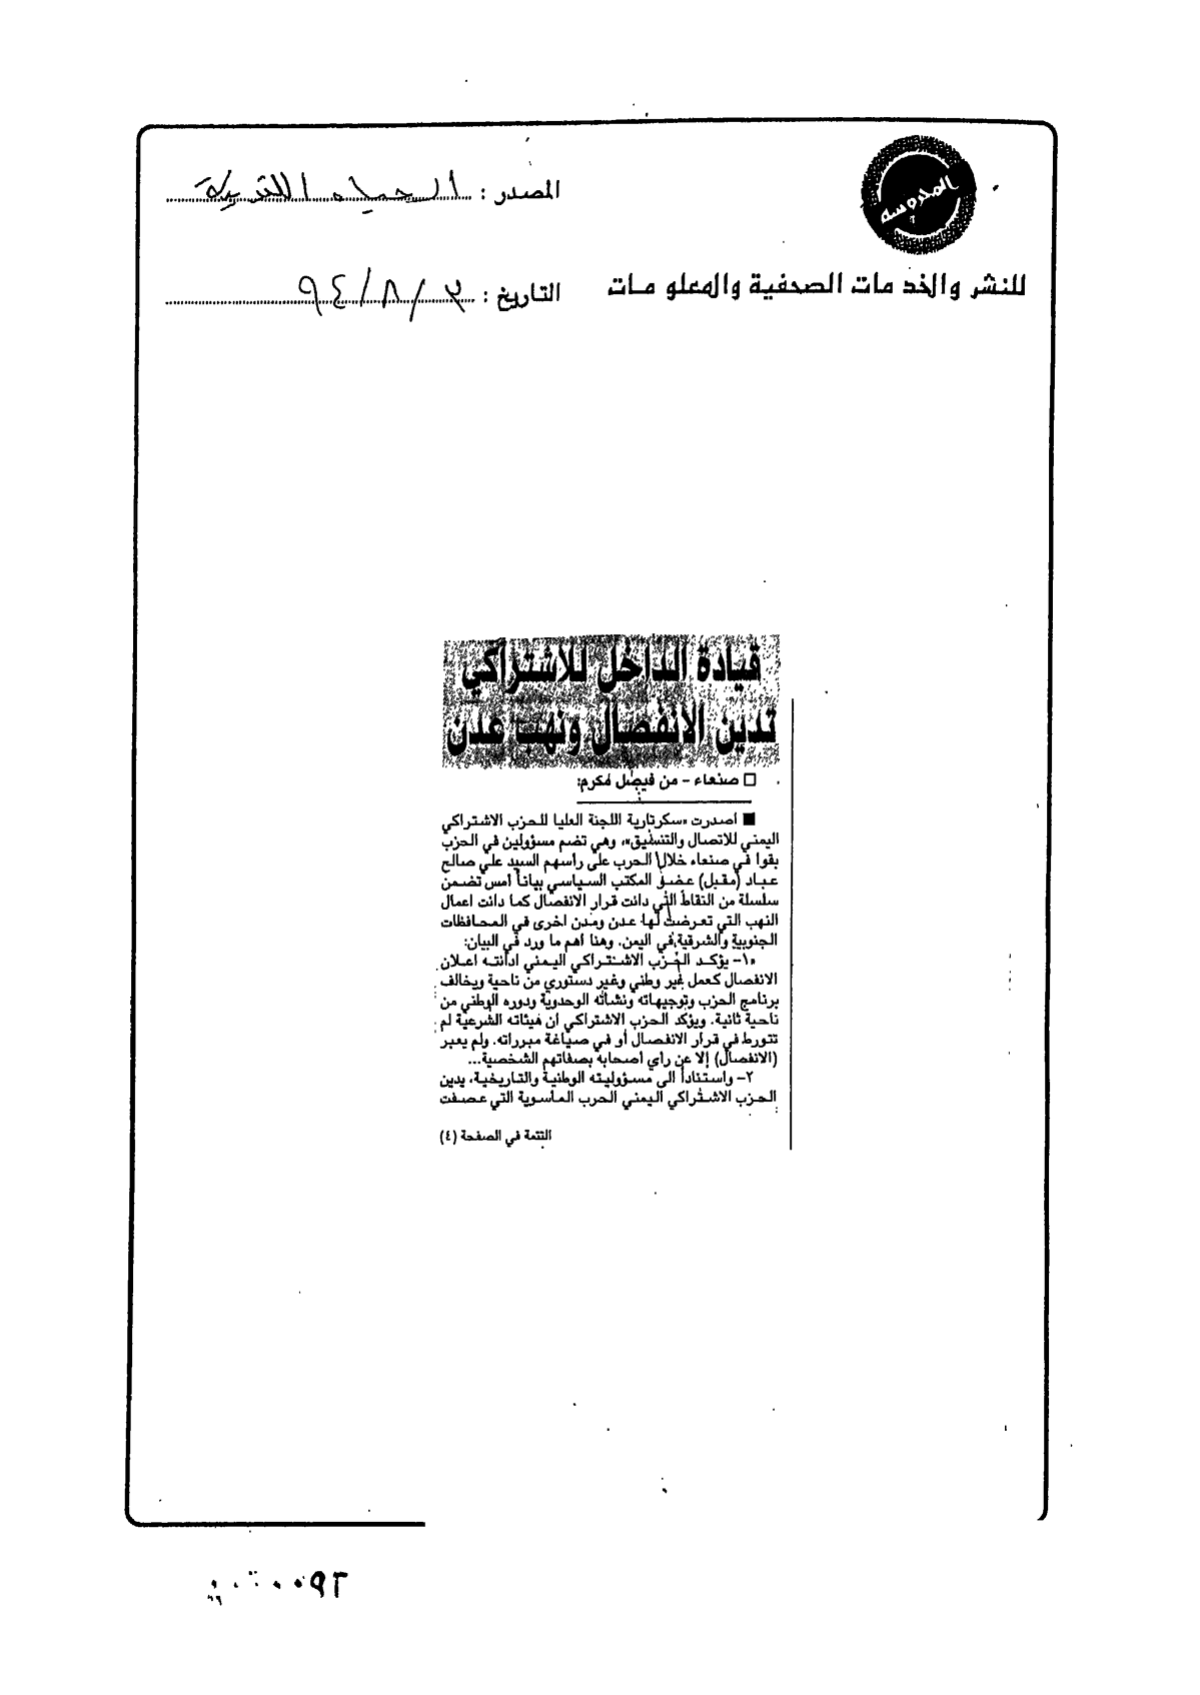 المحروسة
المصدر : الحياة اللندنية
للنشر والخدمات الصحفية والمعلومات
التاريخ : ٣/٨/٩٤
قيادة الداخل للاشتراكي
تدين الانفصال ونهب عدن
□ صنعاء - من فيصل مكرم:
■ اصدرت «سكرتارية اللجنة العليا للحزب الاشتراكي
اليمني للاتصال والتنسيق»، وهي تضم مسؤولين في الحزب
بقوا في صنعاء خلال الحرب على راسهم السيد علي صالح
عباد (مقبل) عضو المكتب السياسي بياناً امس تضمن
سلسلة من النقاط التي دانت قرار الانفصال كما دانت اعمال
النهب التي تعرضت لها عدن ومدن اخرى في المحافظات
الجنوبية والشرقية في اليمن. وهنا اهم ما ورد في البيان:
«١- يؤكد الحزب الاشتراكي اليمني ادانته اعلان
الانفصال كعمل غير وطني وغير دستوري من ناحية ويخالف
برنامج الحزب وتوجيهاته ونشأته الوحدوية ودوره الوطني من
ناحية ثانية. ويؤكد الحزب الاشتراكي ان هيئاته الشرعية لم
تتورط في قرار الانفصال أو في صياغة مبرراته. ولم يعبر
(الانفصال) إلا عن راي اصحابه بصفاتهم الشخصية...
٢- واستناداً الى مسؤوليته الوطنية والتاريخية، يدين
الحزب الاشتراكي اليمني الحرب المأسوية التي عصفت
التتمة في الصفحة (٤)